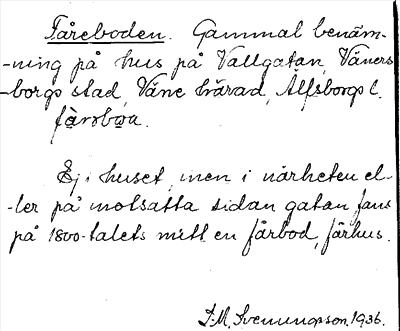 Fåreboden. Gammal benäm-
-ning på hus på Vallgatan, Väners-
-borgs stad, Väne härad, Älfsborgs l.
fåroboa.
Ej i huset, men i närheten el-
-ler på motsatta sidan gatan fans
på 1800-talets mitt en fårbod, fårhus.
J. M. Svenungsson, 1936.